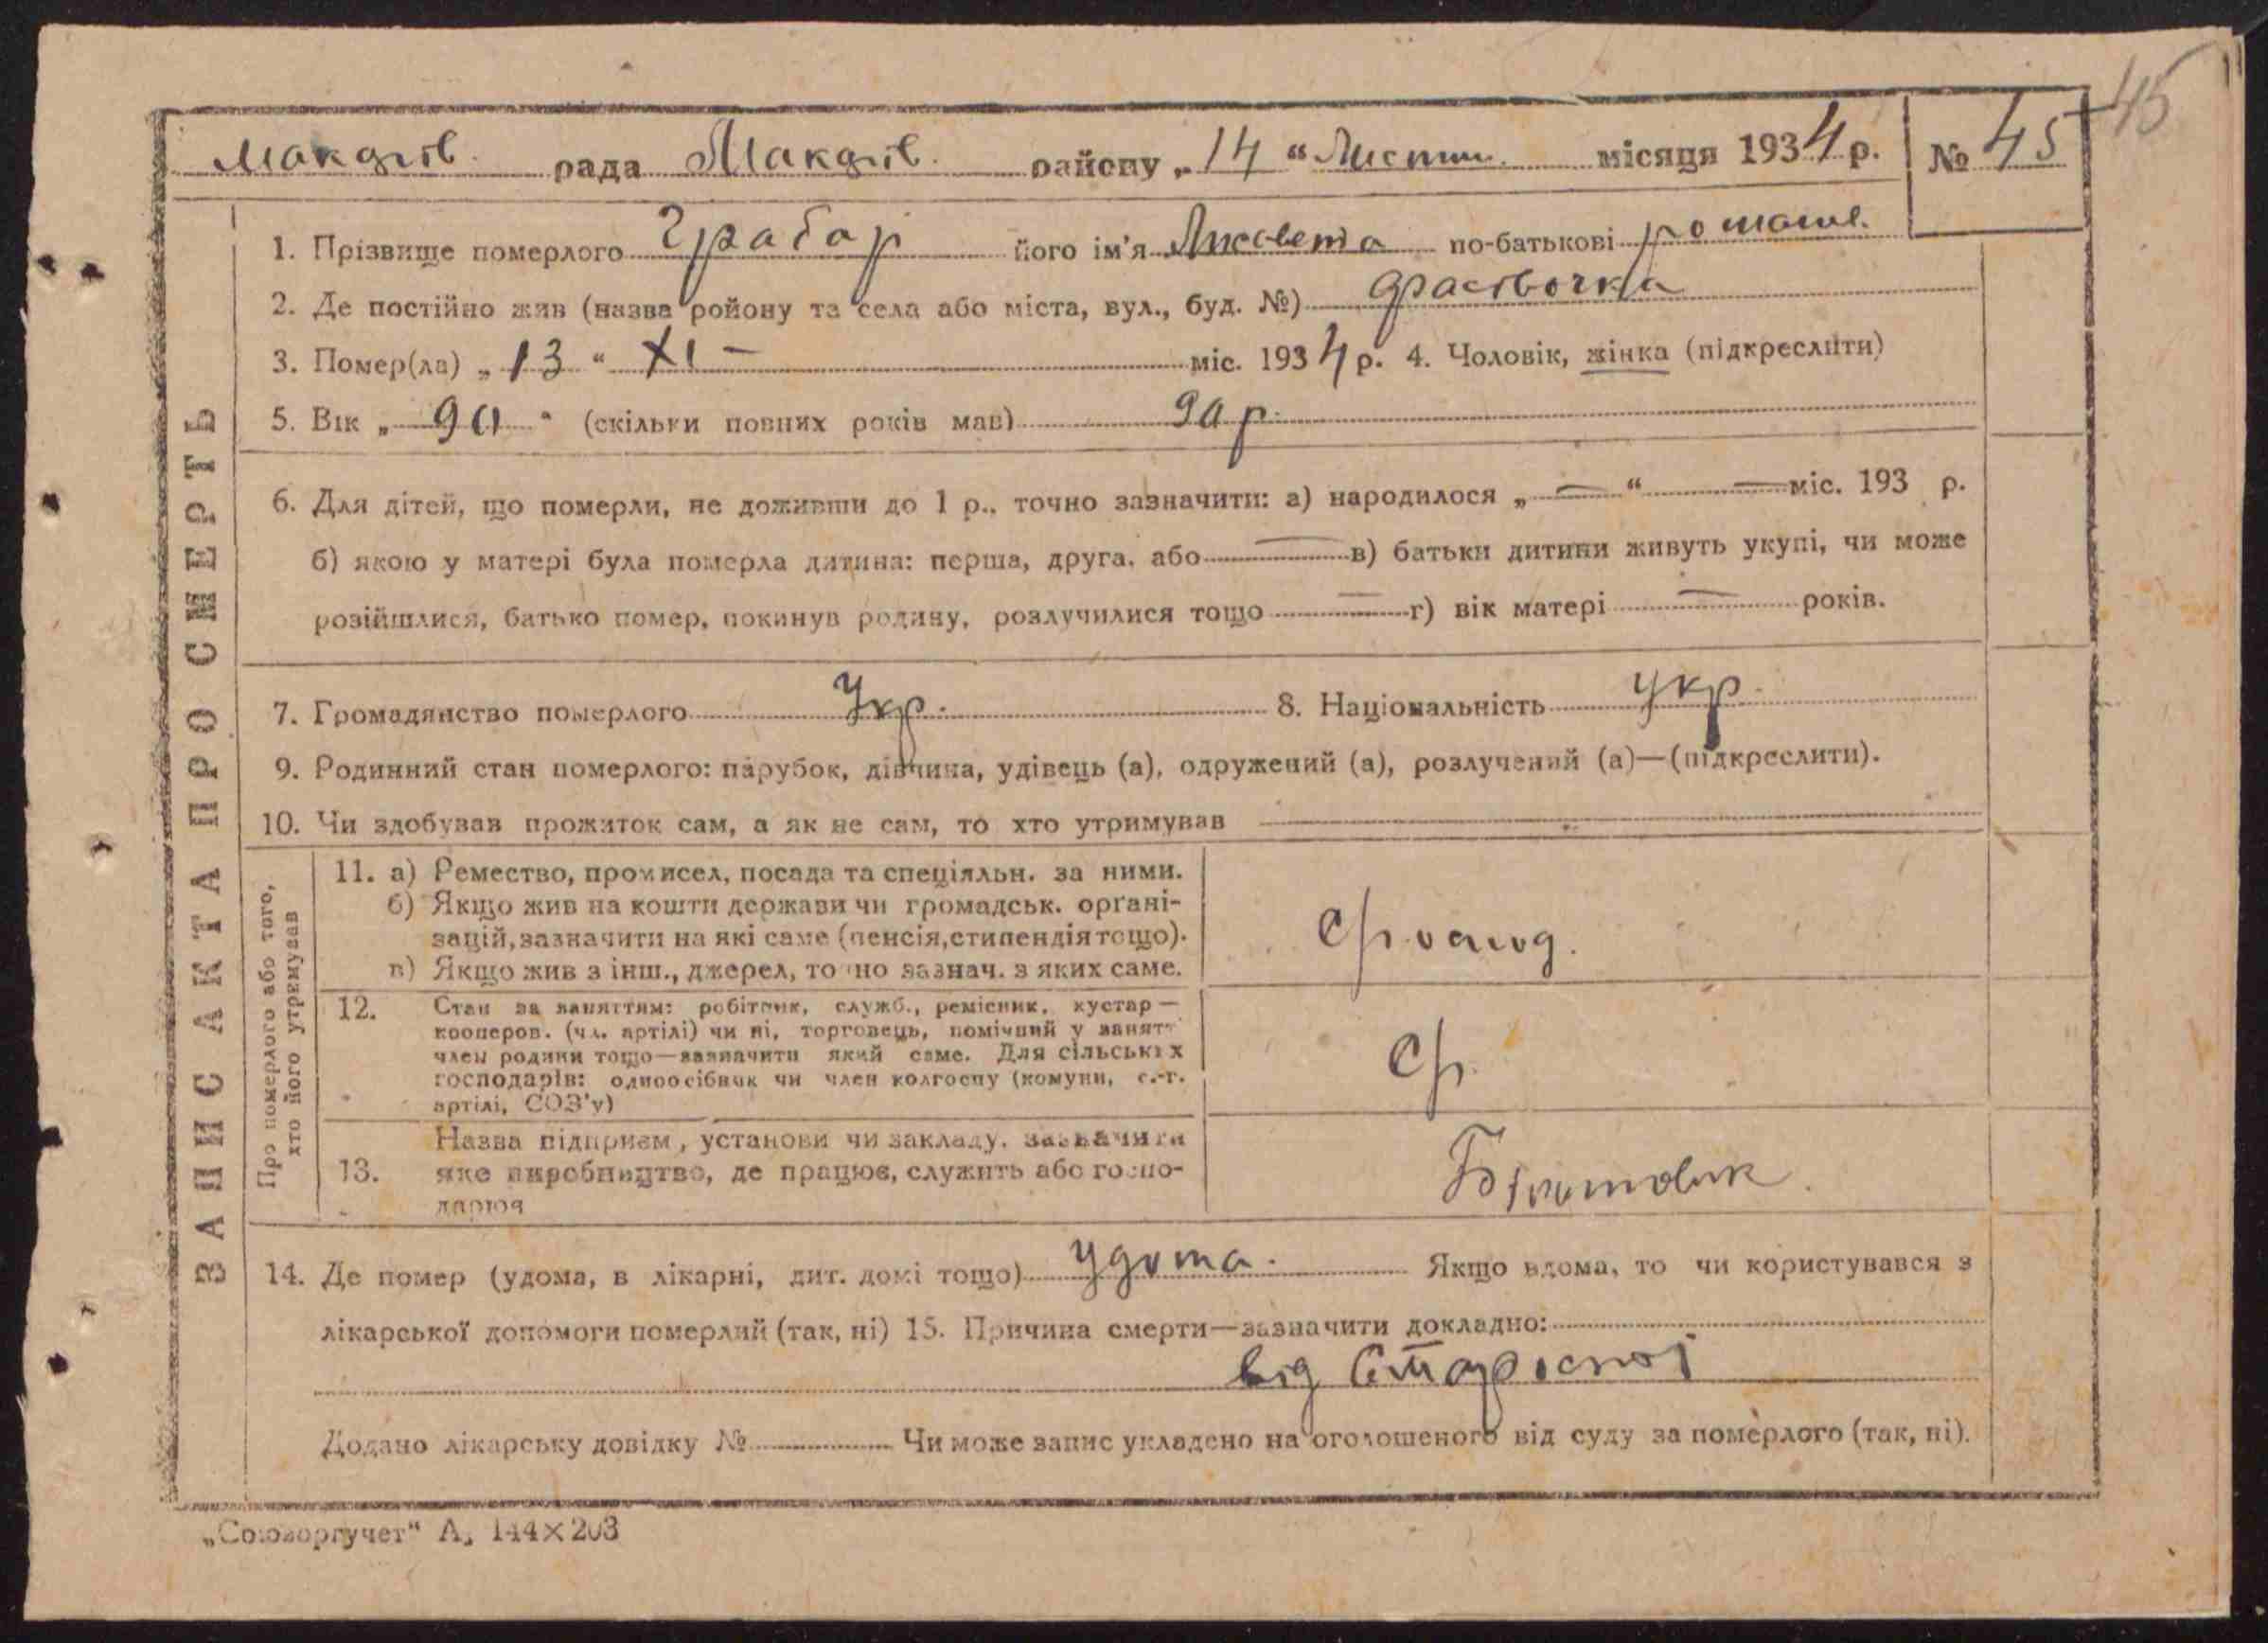 45
Макарів. рада Макарів. району „14“ Листоп. місяця 1934 р. № 45
1. Прізвище померлого Грабар його ім'я Лисовета по-батькові роман.
2. Де постійно жив (назва ройону та села або міста, вул., буд. №) Фасівочка
3. Помер(ла) „13“ XI — міс. 1934 р. 4. Чоловік, жінка (підкреслити)
5. Вік „90“ (скільки повних років мав) 90 р.
6. Для дітей, що померли, не доживши до 1 р., точно зазначити: а) народилося „—“ — міс. 193 р.
б) якою у матері була померла дитина: перша, друга, або — в) батьки дитини живуть укупі, чи може
розійшлися, батько помер, покинув родину, розлучилися тощо — г) вік матері — років.
7. Громадянство померлого Укр. 8. Національність укр.
9. Родинний стан померлого: парубок, дівчина, удівець (а), одружений (а), розлучений (а)—(підкреслити).
10. Чи здобував прожиток сам, а як не сам, то хто утримував
ЗАПИС АКТА ПРО СМЕРТЬ
Про померлого або того,
хто його утримував
11. а) Ремество, промисел, посада та спеціяльн. за ними.
б) Якщо жив на кошти держави чи громадськ. органі-
зацій, зазначити на які саме (пенсія, стипендія тощо).
в) Якщо жив з інш., джерел, точно зазнач. з яких саме.
12. Стан за заняттям: робітник, служб., ремісник, кустар —
кооперов. (чл. артілі) чи ні, торговець, помічний у занятт
член родини тощо—зазначити який саме. Для сільських
господарів: одноосібник чи член колгоспу (комуни, с.-г.
артілі, СОЗ'у)
13. Назва підприєм, установи чи закладу, зазначити
яке виробництво, де працює, служить або госпо-
дарює
14. Де помер (удома, в лікарні, дит. домі тощо) удома. Якщо вдома, то чи користувався з
лікарської допомоги померлий (так, ні) 15. Причина смерти—зазначити докладно:
від Старосноі
Додано лікарську довідку № Чи може запис укладено на оголошеного від суду за померлого (так, ні).
„Союзоргучет“ А, 144×203